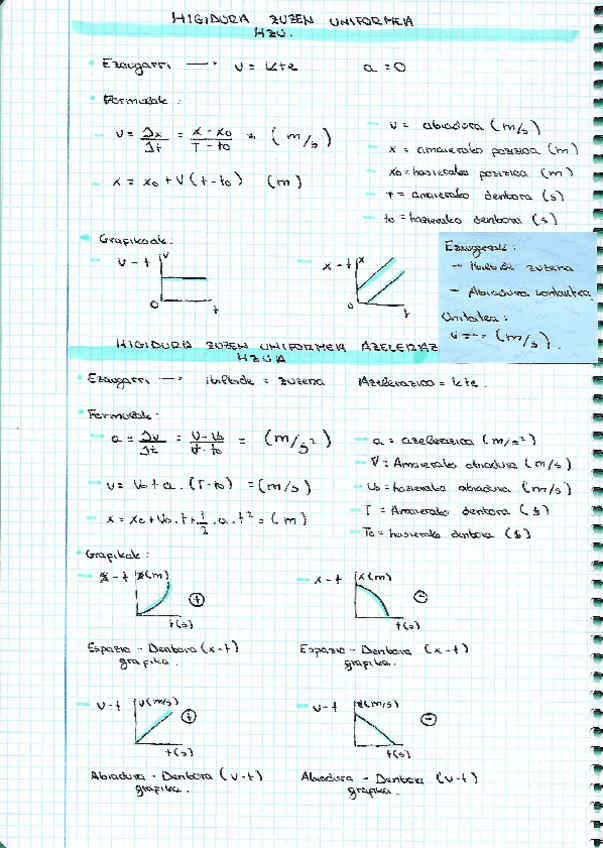 HIGIDURA ZUZEN UNIFORMEA
HZU.
Ezaugarri → v = kte a = 0
Formulak :
v = Δx/Δt = x - x0/T - t0 = (m/s)
v = abiadura (m/s)
x = amaierako posizioa (m)
x = x0 + v (t - t0) (m)
x0 = hasierako posizioa (m)
t = amaierako denbora (s)
t0 = hasierako denbora (s)
Grafikoak:
v - t v t 0
x - t x t 0
Ezaugarriak :
→ Ibilbide zuzena
→ Abiadura konstantea
Unitatea :
v = (m/s).
HIGIDURA ZUZEN UNIFORMEA AZELERAZ
HZUA
Ezaugarri → ibilbide = zuzena Azelerazioa = kte.
Formulak:
a = Δv/Δt = v - v0/t - t0 = (m/s²)
a = azelerazioa (m/s²)
V = Amaierako abiadura (m/s)
v = v0 + a . (T - t0) = (m/s)
v0 = hasierako abiadura (m/s)
T = Amaierako denbora (s)
x = x0 + v0 . t + 1/2 . a . t² = (m)
T0 = hasierako denbora (s)
Grafikak :
x - t x(m) + t(s)
x - t x(m) - t(s)
Espazio - Denbora (x - t)
grafika.
Espazio - Denbora (x - t)
grafika.
v - t v(m/s) + t(s)
v - t v(m/s) - t(s)
Abiadura - Denbora (v - t)
grafika.
Abiadura - Denbora (v - t)
grafika.